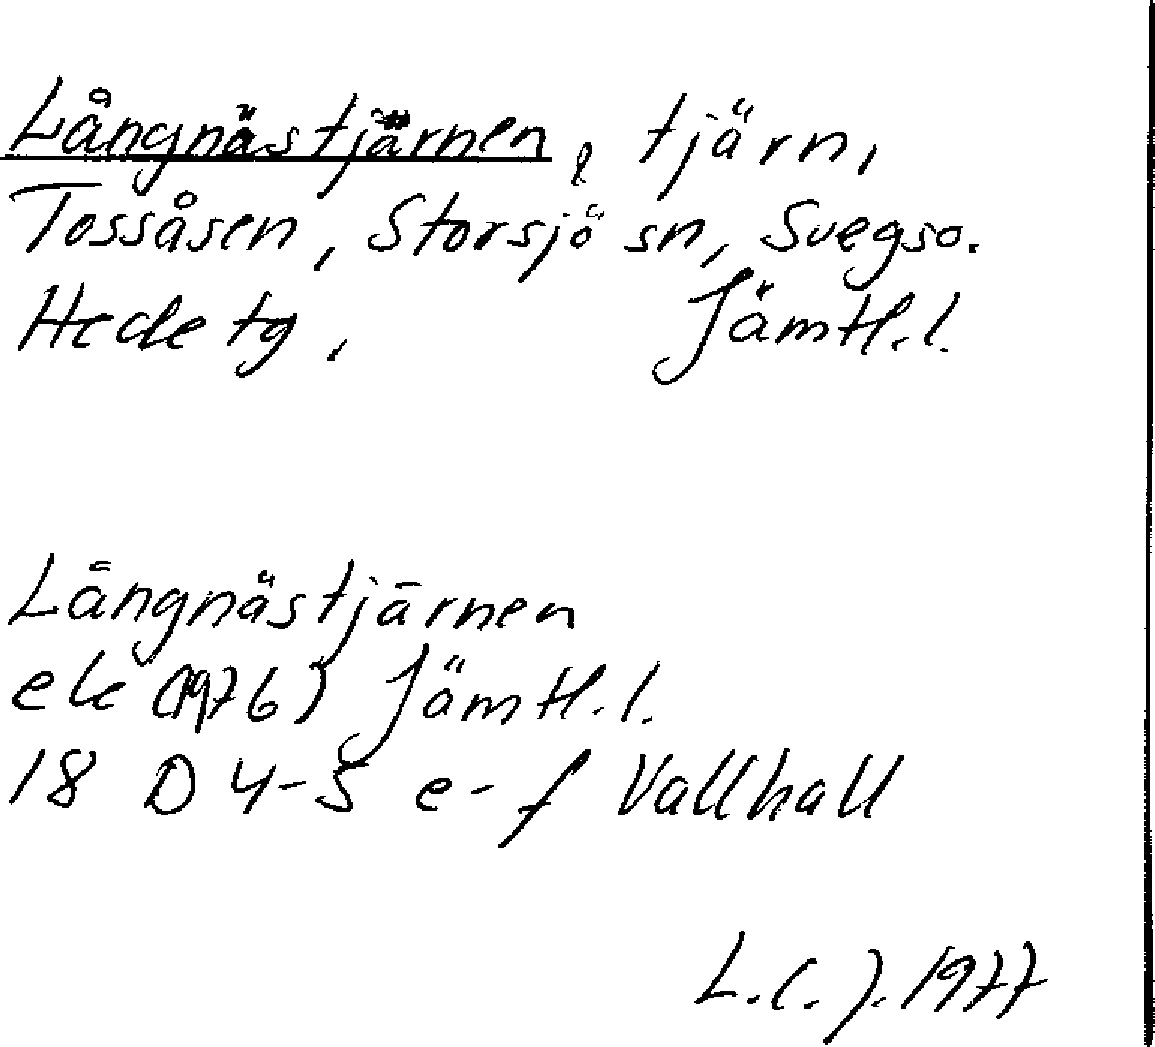 Långnästjärnen, tjärn,
Tossåsen, Storsjö sn, Svegs o.
Hede tg, Jämtl.l.
Långnästjärnen
ek (1976) Jämtl.l.
18 D 4-5 e-f Vallhall
L.C.J. 1977